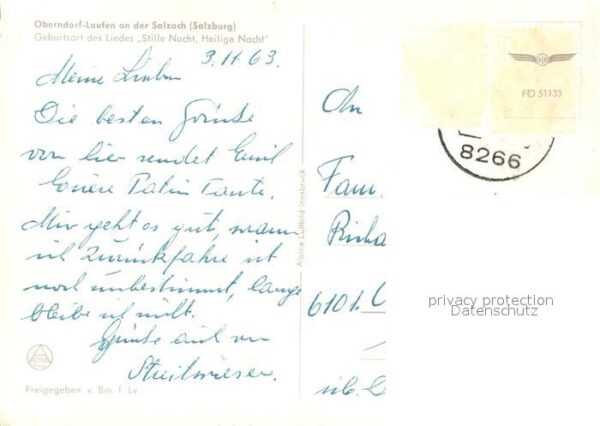 Oberndorf-Laufen an der Salzach (Salzburg)
Geburtsort des Liedes „Stille Nacht, Heilige Nacht"
3.11.63.
Meine Lieben
Die besten Grüße
von hier sendet Euch
Euere Patin Tante.
Mir geht es gut, wann
ich zurückfahre ist
noch unbestimmt, lange
bleibe ich nicht.
Grüße auch von
Freigegeben v. Bm. f. Lv.
Alpine Luftbild Innsbruck
An
Fam.
Richa
6101.
FO 51133
8266
privacy protection
Datenschutz